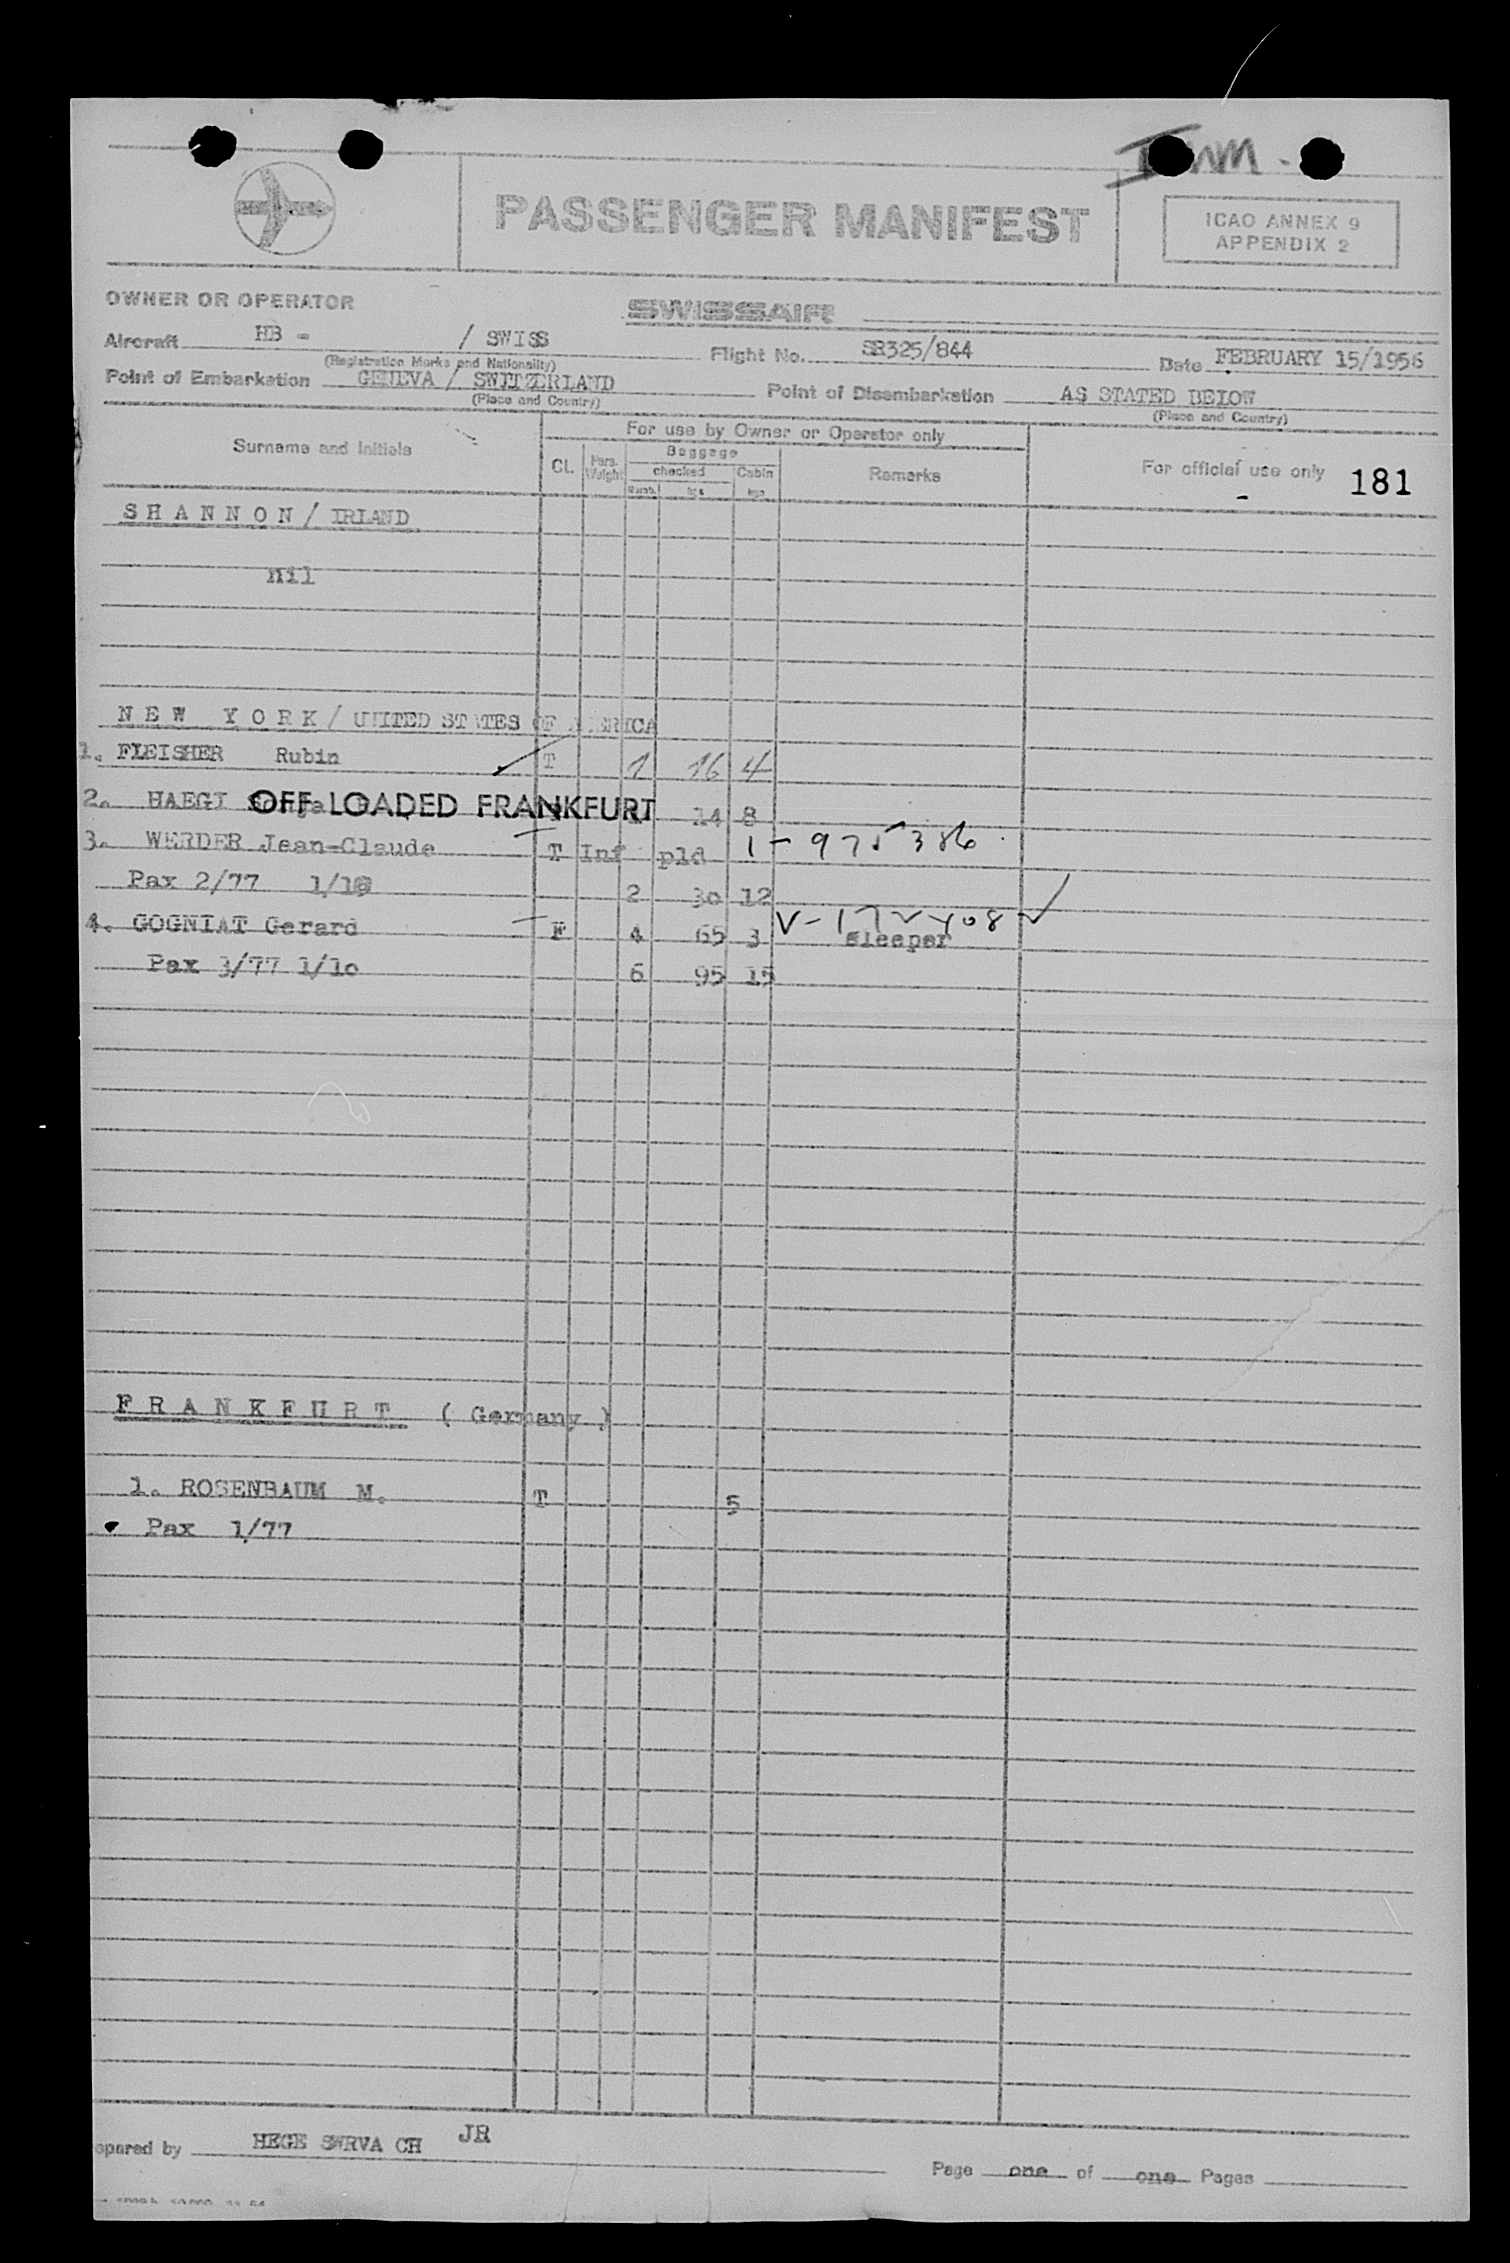 PASSENGER MANIFEST
ICAO ANNEX 9
APPENDIX 2
OWNER OR OPERATOR SWISSAIR
Aircraft HB - / SWISS Flight No. SR325/844 Date FEBRUARY 15/1956
(Registration Marks and Nationality)
Point of Embarkation GENEVA / SWITZERLAND Point of Disembarkation AS STATED BELOW
(Place and Country) (Place and Country)
Surname and Initials For use by Owner or Operator only For official use only 181
Cl. Pers. Weight Baggage Remarks
checked Cabin
Numb. kgs kgs
S H A N N O N / IRLAND
nil
N E W Y O R K / UNITED STATES OF AMERICA
1. FLEISHER Rubin T 1 16 4
2. HAEGI OFF LOADED FRANKFURT 14 8
3. WERDER Jean-Claude T Inf pld 1-975386
Pax 2/77 2 30 12
4. GOGNIAT Gerard F 4 65 3 sleeper
Pax 3/77 1/1o 6 95 15
F R A N K F U R T ( Germany )
1. ROSENBAUM M. T 5
Pax 1/77
epared by HEGE SWRVA CH JR
Page one of one Pages